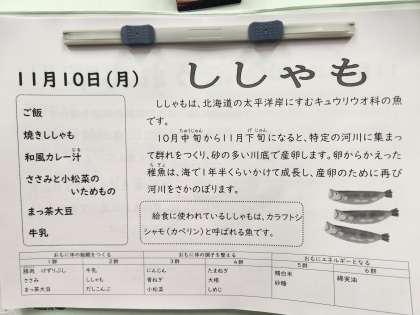 11月10日(月)
ししゃも
ご飯
焼きししゃも
和風カレー汁
じる
ささみと小松菜の
いためもの
まっ茶大豆
牛乳
ししゃもは、北海道の太平洋岸にすむキュウリウオ科の魚
です。
ちゅうじゅん げじゅん
10月中旬から11月下旬になると、特定の河川に集まっ
て群れをつくり、砂の多い川底で産卵します。卵からかえった
ちぎょ
稚魚は、海で1年半くらいかけて成長し、産卵のために再び
河川をさかのぼります。
給食に使われているししゃもは、カラフトシ
シャモ(カペリン)と呼ばれる魚です。
おもに体の組織をつくる おもに体の調子を整える おもにエネルギーとなる
1群 2群 3群 4群 5群 6群
豚肉 けずりぶし 牛乳 にんじん たまねぎ 精白米 綿実油
ささみ ししゃも 青ねぎ 大根 砂糖
まっ茶大豆 だしこんぶ 小松菜 しめじ